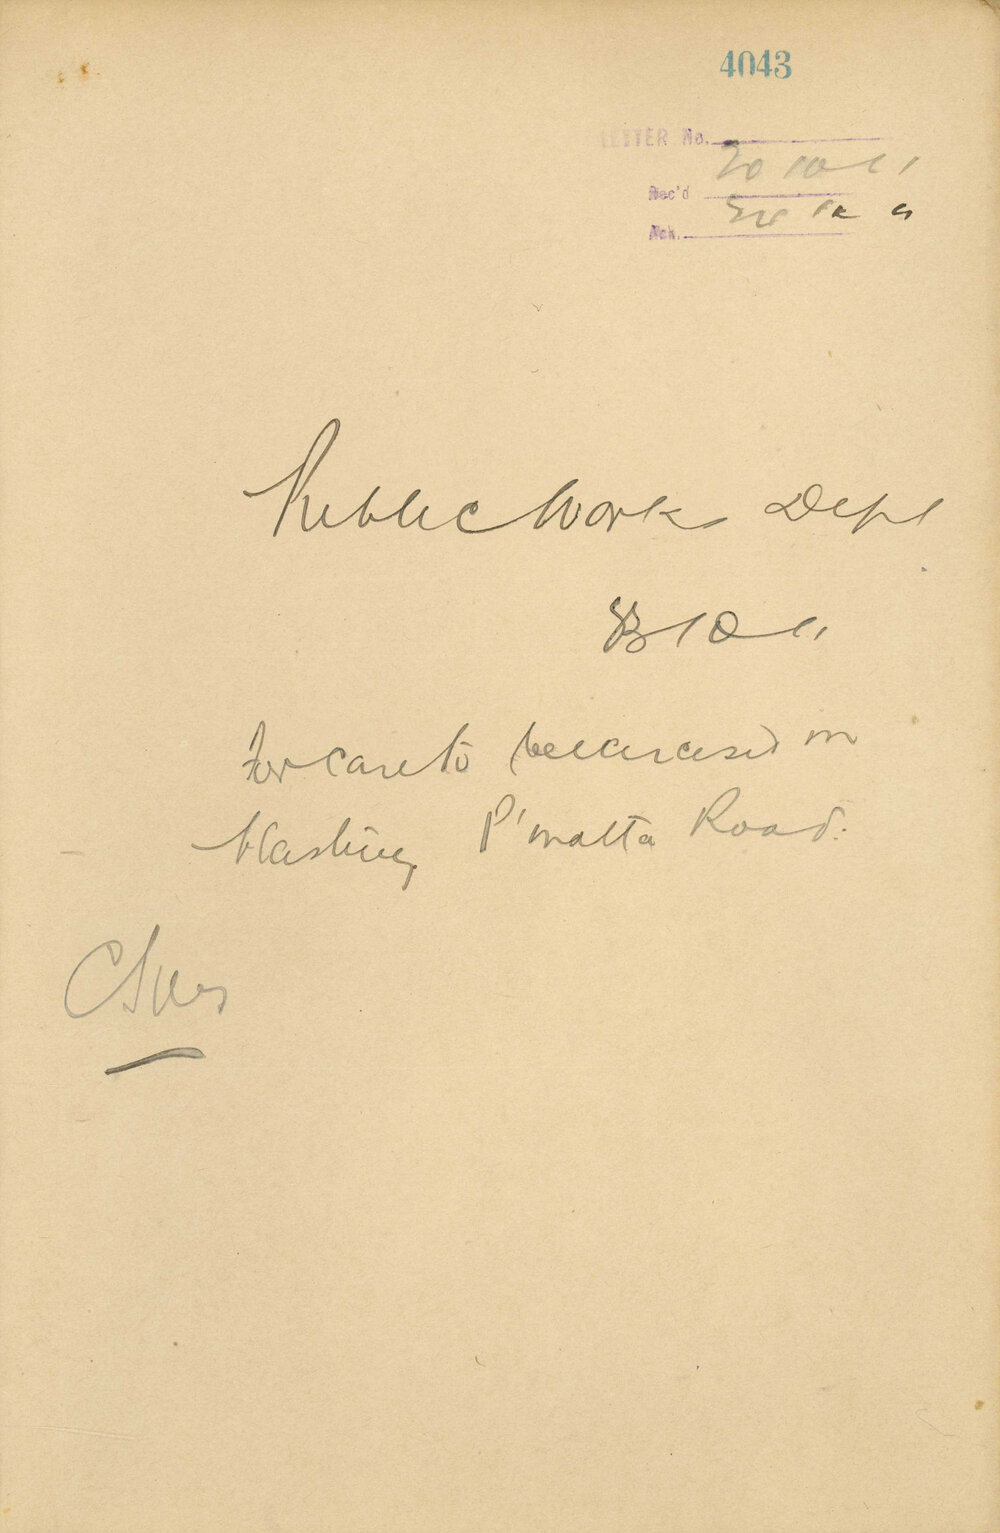 4043
LETTER No.
Rec'd 20 10 11
Ack.
Public Works Dept
10 11
For care to be exercised in
blasting P'matta Road.